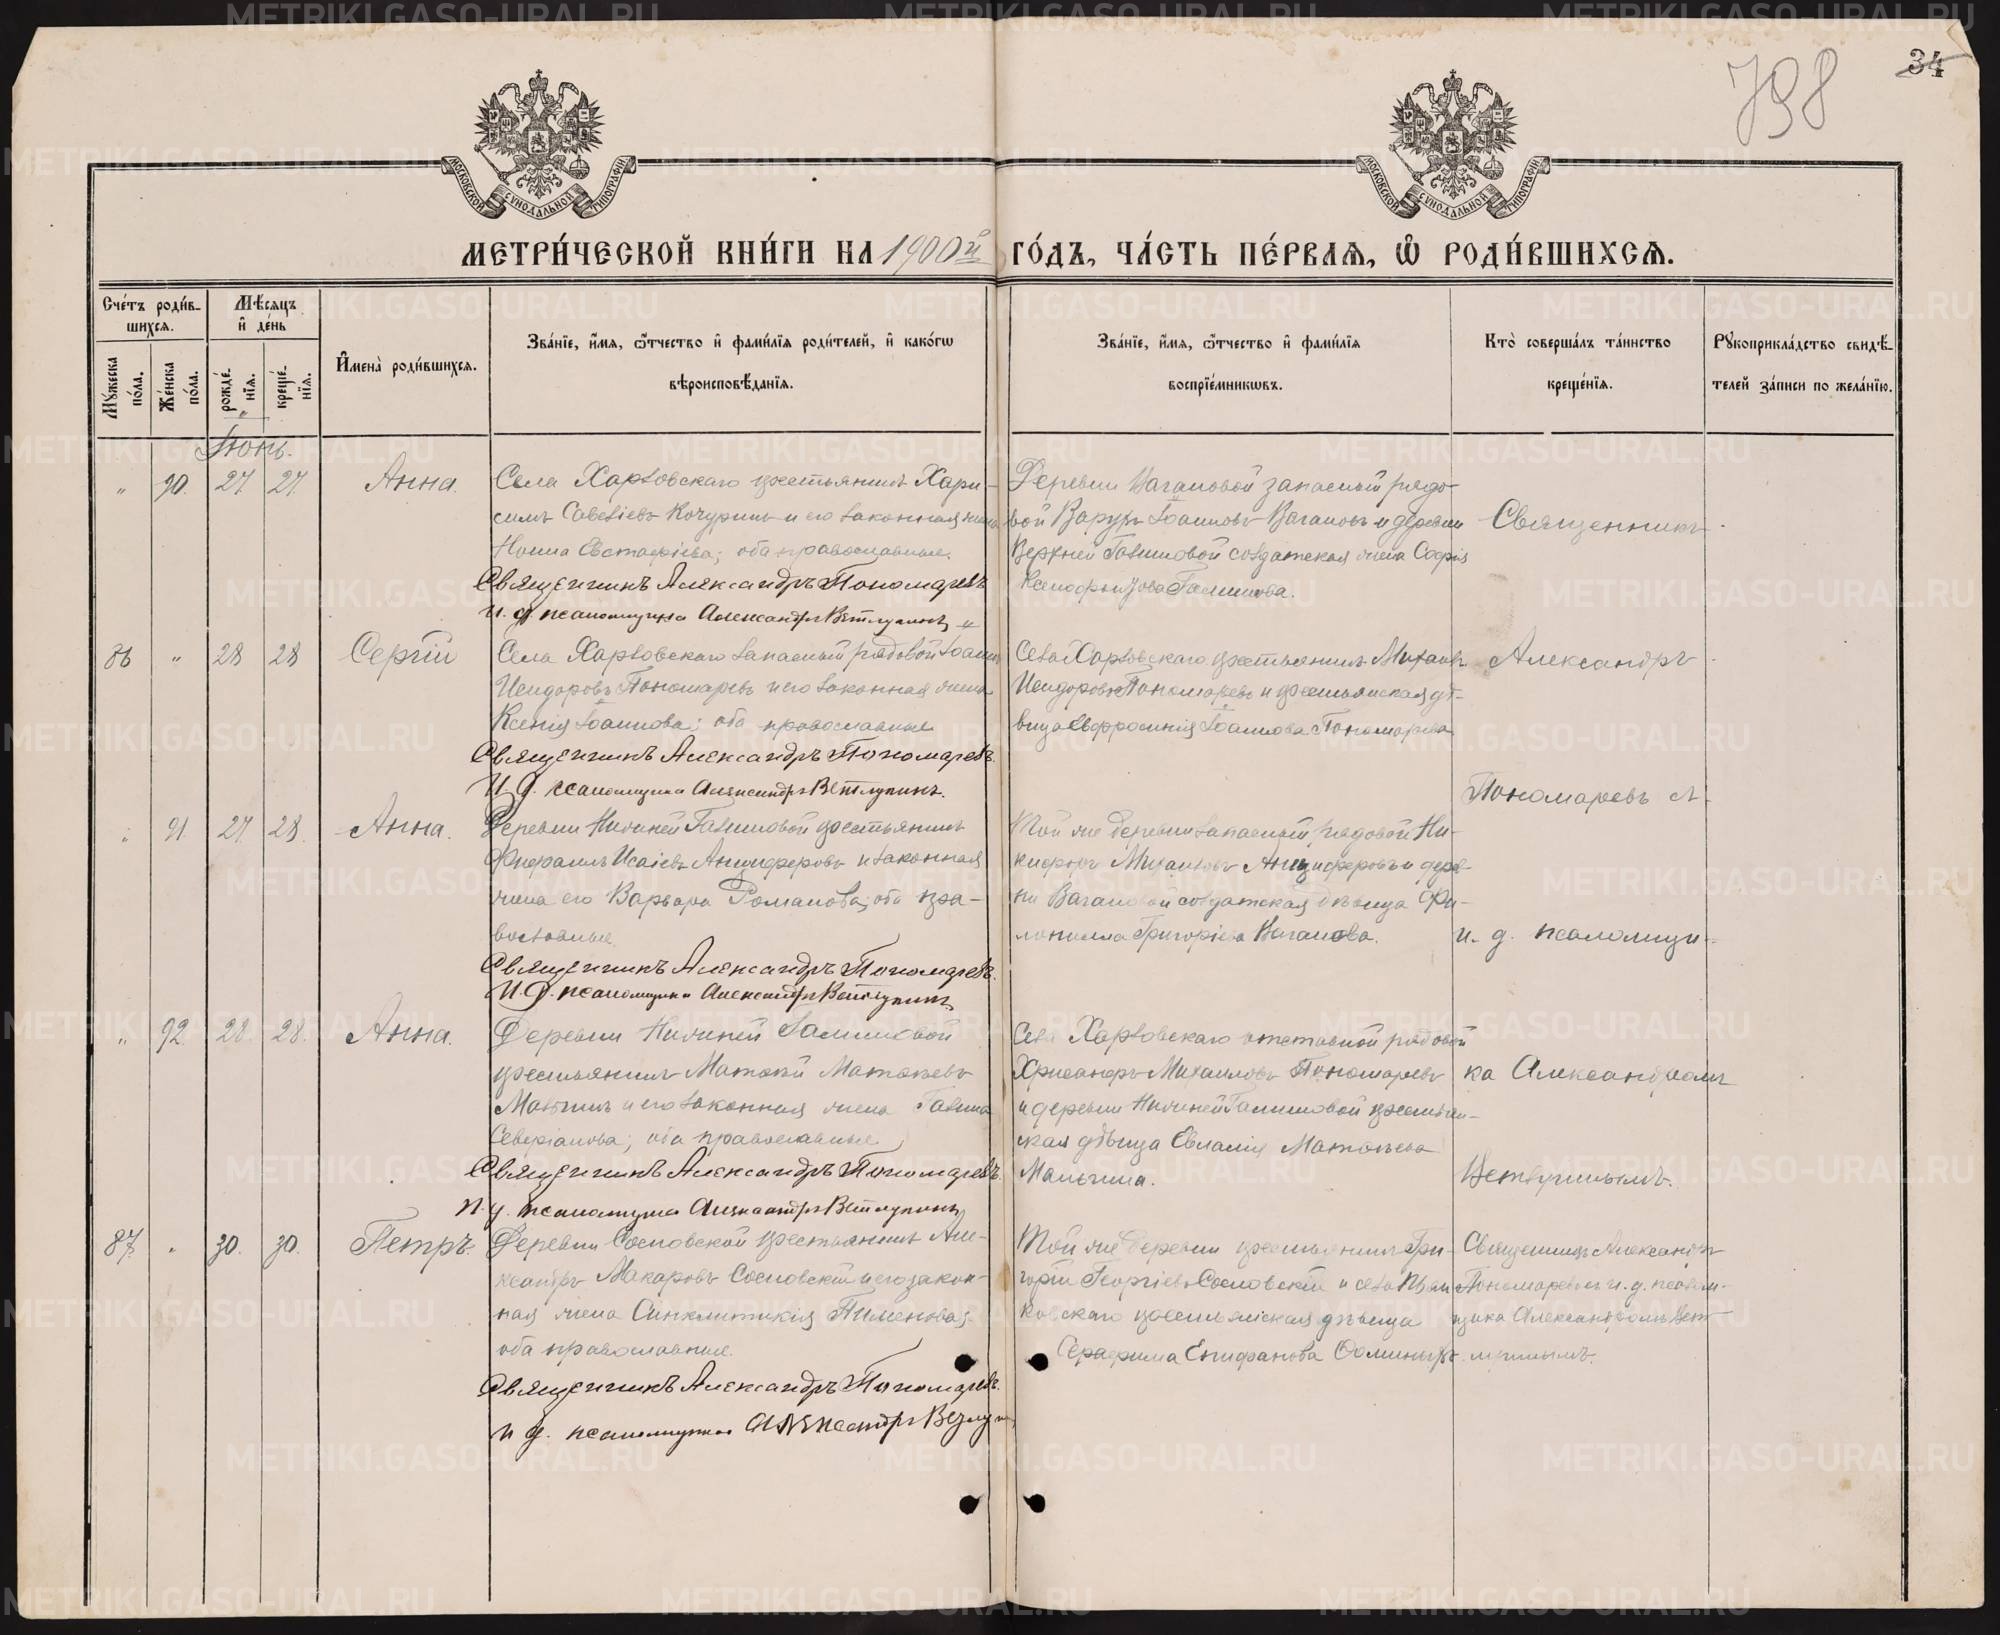 34
798
МОСКОВСКОЙ СУНОДАЛЬНОЙ ТИПОГРАФІИ
МОСКОВСКОЙ СУНОДАЛЬНОЙ ТИПОГРАФІИ
МЕТРИ́ЧЕСКОЙ КНИ́ГИ НА 1900й ГО́ДЪ, ЧА́СТЬ ПЕ́РВАЯ, Ѡ РОДИ́ВШИХСЯ.
Сче́тъ роди́в-
шихся.
Мѣ́сяцъ
и҆ де́нь
Мꙋ́жеска по́ла.
Же́нска по́ла.
рожде́-
нїя.
креще́-
нїя.
И҆мена̀ роди́вшихся.
Зва́нїе, и҆́мя, ѻ҆́тчество и҆ фами́лїя роди́телей, и҆ како́гѡ
вѣроисповѣ́данїя.
Зва́нїе, и҆́мя, ѻ҆́тчество и҆ фами́лїя
воспрїе́мникѡвъ.
Кто̀ соверша́лъ та́инство
креще́нїя.
Рꙋкоприкла́дство свидѣ́-
телей за́писи по жела́нїю.
Іюнь.
" 90. 27. 27. Анна.
Села Харловскаго крестьянинъ Хари-
симъ Савеліевъ Кочуринъ и его законная жена
Нонна Евстафіева; оба православные.
Священникъ Александръ Пономаревъ
И. д. псаломщика Александръ Ветлугинъ
Деревни Вагановой запасный рядо-
вой Іоанновъ Вагановъ и деревни
Верхней Галишовой солдатская жена Софія
Ксенофонтова Галишова.
Священникъ
86 " 28 28 Сергій
Села Харловскаго запасный рядовой Іоаннъ
Исидоровъ Пономаревъ и его законная жена
Ксенія Іоаннова; оба православные
Священникъ Александръ Пономаревъ.
И. д. псаломщика Александръ Ветлугинъ.
Села Харловскаго крестьянинъ Михаилъ
Исидоровъ Пономаревъ и крестьянская дѣ-
вица Евфросинія Іоаннова Пономарева
Александръ
Пономаревъ
" 91. 27. 28. Анна.
Деревни Нижней Галишовой крестьянинъ
Исаіевъ Анциферовъ и законная
жена его Варвара Романова; оба пра-
вославные.
Священникъ Александръ Пономаревъ.
И. д. псаломщика Александръ Ветлугинъ
Той же деревни запасный рядовой Ни-
кифоръ Михаиловъ Анциферовъ и дерев-
ни Вагановой солдатская дѣвица Фи-
лонилла Григоріева Ваганова.
и. д. псаломщи-
" 92. 28. 28. Анна.
Деревни Нижней Галишовой
крестьянинъ Матѳій Матѳіевъ
Мальгинъ и его законная жена Галина
Северіанова; оба православные
Священникъ Александръ Пономаревъ.
И. д. псаломщика Александръ Ветлугинъ
Села Харловскаго отставной рядовой
Хрисанфъ Михаиловъ Пономаревъ
и деревни Нижней Галишовой крестьян-
ская дѣвица Евлалія Матѳіева
Мальгина.
ка Александромъ
Ветлугинымъ.
87. " 30. 30. Петръ.
Деревни Сосновской крестьянинъ Але-
ксандръ Макаровъ Сосновскій и его закон-
ная жена Синклитикія Пименова;
оба православные.
Священникъ Александръ Пономаревъ.
и д. псаломщика Александръ
Той же деревни крестьянинъ Гри-
горій Георгіевъ Сосновскій и села
ковскаго крестьянская дѣвица
Серафима Епифанова
Священникъ Александръ
Пономаревъ и. д. псалом-
щика Александромъ Вет-
лугинымъ.
METRIKI.GASO-URAL.RU